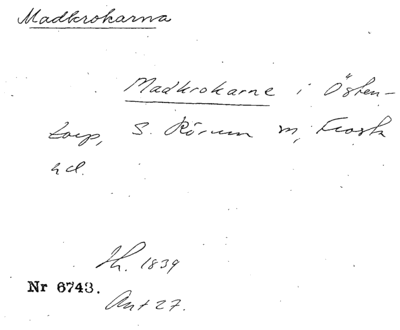 Madkrokarna
Madkrokarne i Östen-
torp, S. Rörum m, Frosta
hd.
Jh. 1839
Nr 6743.
Ant 27.